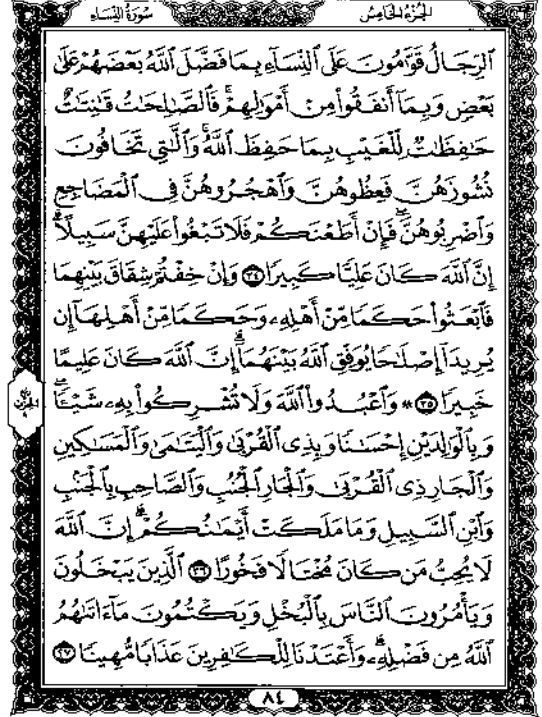 الجزء الخامس
سورة النساء
ٱلرِّجَالُ قَوَّٰمُونَ عَلَى ٱلنِّسَآءِ بِمَا فَضَّلَ ٱللَّهُ بَعْضَهُمْ عَلَىٰ
بَعْضٍ وَبِمَآ أَنفَقُوا۟ مِنْ أَمْوَٰلِهِمْ ۚ فَٱلصَّٰلِحَٰتُ قَٰنِتَٰتٌ
حَٰفِظَٰتٌ لِّلْغَيْبِ بِمَا حَفِظَ ٱللَّهُ ۚ وَٱلَّٰتِى تَخَافُونَ
نُشُوزَهُنَّ فَعِظُوهُنَّ وَٱهْجُرُوهُنَّ فِى ٱلْمَضَاجِعِ
وَٱضْرِبُوهُنَّ ۖ فَإِنْ أَطَعْنَكُمْ فَلَا تَبْغُوا۟ عَلَيْهِنَّ سَبِيلًا ۗ
إِنَّ ٱللَّهَ كَانَ عَلِيًّا كَبِيرًا ٣٤ وَإِنْ خِفْتُمْ شِقَاقَ بَيْنِهِمَا
فَٱبْعَثُوا۟ حَكَمًا مِّنْ أَهْلِهِۦ وَحَكَمًا مِّنْ أَهْلِهَآ إِن
يُرِيدَآ إِصْلَٰحًا يُوَفِّقِ ٱللَّهُ بَيْنَهُمَآ ۗ إِنَّ ٱللَّهَ كَانَ عَلِيمًا
خَبِيرًا ٣٥ ۞ وَٱعْبُدُوا۟ ٱللَّهَ وَلَا تُشْرِكُوا۟ بِهِۦ شَيْـًٔا ۖ
وَبِٱلْوَٰلِدَيْنِ إِحْسَٰنًا وَبِذِى ٱلْقُرْبَىٰ وَٱلْيَتَٰمَىٰ وَٱلْمَسَٰكِينِ
وَٱلْجَارِ ذِى ٱلْقُرْبَىٰ وَٱلْجَارِ ٱلْجُنُبِ وَٱلصَّاحِبِ بِٱلْجَنۢبِ
وَٱبْنِ ٱلسَّبِيلِ وَمَا مَلَكَتْ أَيْمَٰنُكُمْ ۗ إِنَّ ٱللَّهَ
لَا يُحِبُّ مَن كَانَ مُخْتَالًا فَخُورًا ٣٦ ٱلَّذِينَ يَبْخَلُونَ
وَيَأْمُرُونَ ٱلنَّاسَ بِٱلْبُخْلِ وَيَكْتُمُونَ مَآ ءَاتَىٰهُمُ
ٱللَّهُ مِن فَضْلِهِۦ ۗ وَأَعْتَدْنَا لِلْكَٰفِرِينَ عَذَابًا مُّهِينًا ٣٧
٨٤